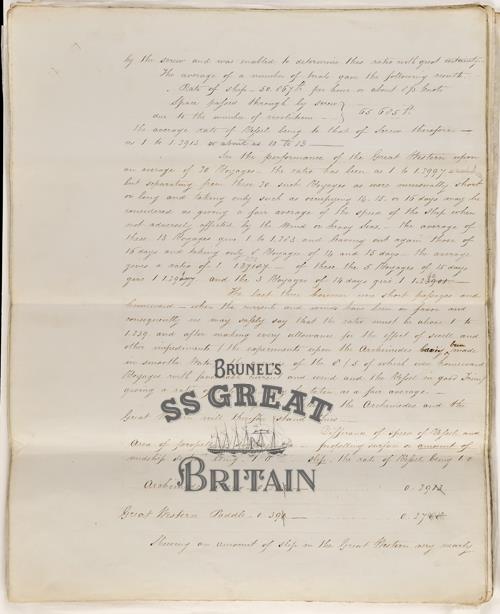 by the screw and was enabled to determine this ratio with great certainty.
The average of a number of trials gave the following result.
Rate of ship - 50.067 ft per hour or about 8½ knots
Space passed through by screw
due to the number of revolutions - 65.685 ft
the average rate of Vessel being to that of Screw therefore
as 1 to 1.3913 or about as 10 to 13
In the performance of the Great Western upon
an average of 30 Voyages - the ratio has been as 1 to 1.3997
but separating from these 30 such Voyages as were unusually short
or long and taking only such as occupying 14. 15. or 16 days may be
considered as giving a fair average of the speed of the Ship when
not adversely affected by the Wind or heavy Seas - the average of
these 13 Voyages give 1 to 1.303 and leaving out again those of
16 days and taking only Voyages of 14 and 15 days - the average
gives a ratio of 1 of these the 5 Voyages of 15 days
give 1 and the 3 Voyages of 14 days give 1
The last three however was short passages and
homeward - when the current and winds have been in favor and
consequently we may safely say that the ratio must be above 1 to
1.339 and after making every allowance for the effect of swell and
other impediments & the experiments upon the Archimedes having been made
in smooth Water of the 8/5 of which were homeward
Voyages with current and wind and the Vessel in good Trim
giving a ratio be taken as a fair average -
the Archimedes and the
Great Western will therefore stand thus -
Difference of speed of Vessel and
Area of propelling surface or amount of
midship slip - the rate of Vessel being 1.0
Archimedes
Great Western Paddle - 1
Shewing an amount of slip in the Great Western very nearly
BRUNEL'S
SS GREAT
BRITAIN